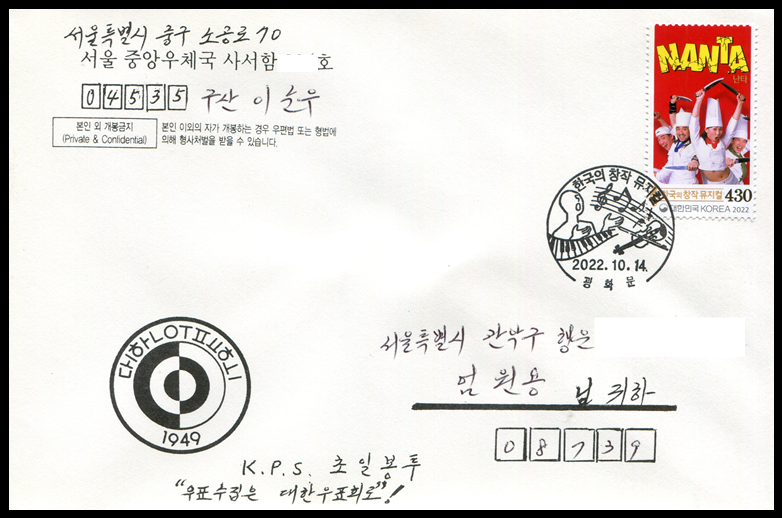 서울특별시 중구 소공로 70
서울 중앙우체국 사서함 호
04535 구산 이
본인 외 개봉금지
(Private & Confidential)
본인 이외의 자가 개봉하는 경우 우편법 또는 형법에
의해 형사처벌을 받을 수 있습니다.
NANTA
난타
한국의 창작 뮤지컬 430
대한민국 KOREA 2022
한국의 창작 뮤지컬
2022.10.14.
광화문
서울특별시 관악구 행운
엄원용 님 귀하
08739
1949
K.P.S. 초일봉투
"우표수집은 대한우표회로"!